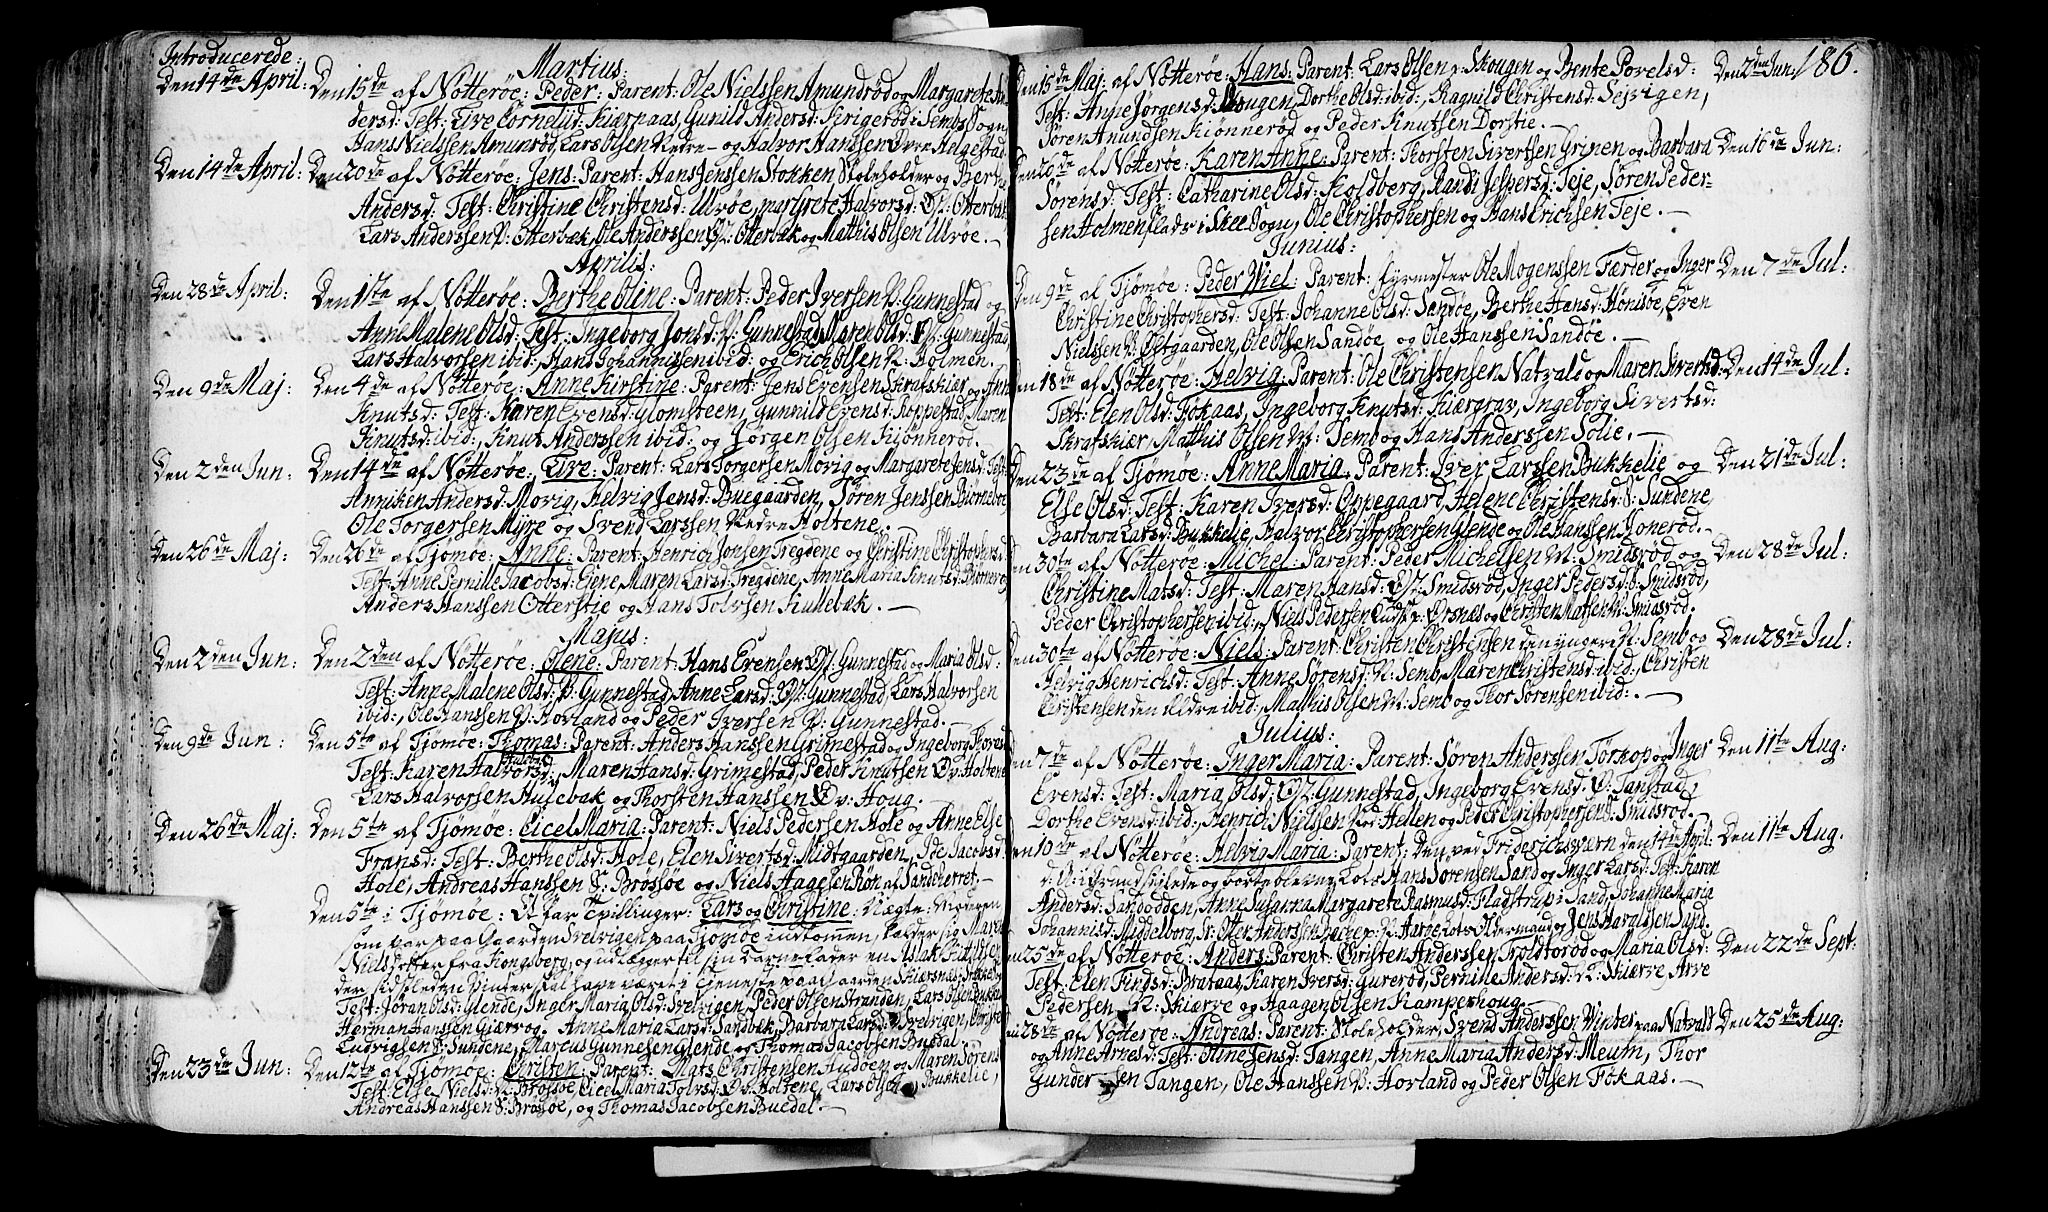 Introducerede:
Martius:
Den 14de April: Den 15de af Nötteröe: Peder: Parent: Ole Nielssen Amundröd og Margarete An
dersd: Test: Live Cornelid: Kiærpaas, Gunild Andersd: Krigeröd i Sembs Sogn,
Hans Nielssen Amunröd, Lars Olsen Nedre- og Halvor Hanssen Övre Helgestad.
Den 14de April: Den 20de af Nötteröe: Jens: Parent: Hans Jenssen Stokken Skoleholder og Berthe
Andersd: Test: Christine Christensd: Ulvöe, Margrete Halvorsd: Otterbæk
Lars Anderssen V: Otterbæk, Ole Anderssen Otterbæk og Mathis Olsen Ulvöe. —
Aprilis:
Den 28de April: Den 1ste af Nötteröe: Berthe Oline: Parent: Peder Iversen V: Gunnestad og
Anne Malene Olsd: Test: Ingeborg Jonsd: V: Gunnestad, Maren Olsd: Gunnestad,
Lars Halvorsen ibid: Hans Johannissen ibid: og Erich Olsen V: Bolmen.
Den 9de Maj: Den 4de af Nötteröe: Anne Kirstine: Parent: Jens Evensen Skratskiær og Anne
Knutsd: Test: Karen Evensd: Glomsteen, Gunnild Evensd: Roppestad, Maren
Knutsd: ibid:, Knut Anderssen ibid: og Jörgen Olsen Kiönneröd.
Den 2den Jun: Den 14de af Nötteröe: Live: Parent: Lars Torgersen Movig og Margarete Jensd: Test:
Anniken Andersd: Movig, Helvig Jensd: Buegaarden, Sören Jenssen Biörneboe
Ole Torgersen Myre og Svend Larssen Nedre Holtene.
Den 26de Maj: Den 26de af Tjömöe: Anne: Parent: Henrich Jonsen Tregdene og Christine Christophersd:
Test: Anne Pernille Jacobsd: Ejene, Maren Larsd: Tregdine, Anne Maria Knutsd:
Anders Hanssen Otterstie og Hans Tolvsen Kullebæk. —
Majus:
Den 2den Jun: Den 2den af Nötteröe: Olene: Parent: Hans Evensen Gunnestad og Maria Olsd:
Test: Anne Malene Olsd: V: Gunnestad, Anne Larsd: Gunnestad, Lars Halvorsen
ibid:, Ole Hanssen V: Hovland og Peder Iversen V: Gunnestad.
Den 9de Jun: Den 5te af Tjömöe: Thomas: Parent: Anders Hanssen Grimestad og Ingeborg Thoresd:
Test: Karen Halvorsd: Hulebak, Maren Hansd: Grimestad, Peder Knutsen Öv: Holtene
Lars Halvorsen Hulebak og Thorsten Hanssen Öv: Houg.
Den 26de Maj: Den 5te af Tjömöe: Cicel Maria: Parent: Niels Pedersen Hole og Anne Else
Fransd: Test: Berthe Olsd: Hole, Elen Sivertsd: Midtgaarden, Ide Jacobsd:
Hole, Andreas Hanssen S: Brössöe og Niels Haagesen Røn af Sandeherret. —
Den 5te i Tjömöe: Et Par Tvillinger: Lars og Christine: Uægte: Moderen
som var paa Gaarden Svelvigen paa Tjömöe indkommen, kalder sig Maren
Nielsdotter fra Kongsberg, og udlægger til sin Barnefader en Aslak
der sidstleden Vinter skal have været i Tjeneste paa Gaarden Skiærsnæs:
Test: Jöran Olsd: Glende, Inger Maria Olsd: Svelvigen, Peder Olsen Stranden, Lars Olsen Bukkelie
Herman Hanssen Giærv og Anne Maria Larsd: Sandbæk, Barbara Larsd: Svelvigen, Christen
Ludvigsen S: Sundene, Marcus Gunnesen Glende og Thomas Jacobsen Buedal
Den 23de Jun: Den 12te af Tjömöe: Christen: Parent: Mats Christensen Hudöen og Maren Sörensd:
Test: Else Nielsd: N: Brössöe, Cicel Maria Tolvsd: Öv: Holtene, Lars Olsen Bukkelie,
Andreas Hanssen S: Brössöe, og Thomas Jacobsen Buedal. —
186.
Den 15de Maj: af Nötteröe: Hans: Parent: Lars Olsen Skougen og Bente Povelsd: Den 2den Jun:
Test: Anne Jörgensd: Skougen, Dorthe Olsd: ibid:, Ragnild Christensd: Sejvigen,
Sören Anundsen Kiönneröd og Peder Knutsen Dorstie. —
Den 26de af Nötteröe: Karen Anne: Parent: Thorsten Sivertsen Grinen og Barbara Den 16de Jun:
Sörensd: Test: Catharine Olsd: Holdberg, Randi Jespersd: Teje, Sören Peder-
sen Holmenflads i Skee Sogn, Ole Christophersen og Hans Erichsen Teje. —
Junius:
Den 9de af Tjömöe: Peder Wiel: Parent: Fyrmester Ole Mogenssen Færder og Inger Den 7de Jul:
Christine Christophersd: Test: Johanne Olsd: Sandöe, Berthe Hansd: Hönisöe, Even
Nielssen V: Östgaarden, Ole Olsen Sandöe og Ole Hanssen Sandöe. —
Den 18de af Nötteröe: Helvig: Parent: Ole Christensen Natvald og Maren Sivertsd: Den 14de Jul:
Test: Elen Olsd: Fökaas, Ingeborg Knutsd: Kiærgrav, Ingeborg Sivertsd:
Skratskiær Matthis Olsen N: Semb og Hans Anderssen Solie. —
Den 23de af Tjömöe: Anne Maria: Parent: Iver Larssen Bukkelie og Den 21de Jul:
Else Olsd: Test: Karen Iversd: Oppegaard, Helene Christensd: S: Sundene,
Barbara Larsd: Bukkelie, Halvor Christophersen Glende og Ole Hanssen Honeröd. —
Den 30te af Nötteröe: Michel: Parent: Peder Michelsen N: Smidsröd og Den 28de Jul:
Christine Matsd: Test: Maren Hansd: Smidsröd, Inger Pedersd: S: Smidsröd,
Peder Christophersen ibid:, Niels Pedersen Orsnæs og Christen Matsen N: Smidsröd.
Den 30te af Nötteröe: Niels: Parent: Christen Christensen den yngere N: Semb og Den 28de Jul:
Helvig Henrichsd: Test: Anne Sörensd: N: Semb, Maren Christensd: ibid: Christen
Christensen den Eldre ibid:, Mathis Olsen N: Semb og Thor Sörensen ibid:. —
Julius:
Den 7de af Nötteröe: Inger Maria: Parent: Sören Anderssen Torkop og Inger Den 11te Aug:
Evensd: Test: Maria Olsd: Gunnestad, Ingeborg Evensd: Ö: Tanstad,
Dorthe Evensd: ibid:, Henrich Nielssen Hellen og Peder Christophersen S: Smidsröd.
Den 10de af Nötteröe: Helvig Maria: Parent: Den ved Friderichsværn den 14de April: Den 11te Aug:
d: A: i Grund skiulede og bortblevne Lots Hans Sörensen Sand og Inger Larsd: Test: Karen
Andersd: Sandodden, Anne Susanna Margarete Rasmusd: Fladstrup i Sand, Johanne Maria
Johannisd: Middelborg, Sr: Otter Anderssen Lots Oldermand og Jens Haraldsen Sand.
Den 25de af Nötteröe: Anders: Parent: Christen Anderssen Troldtoröd og Maria Olsd: Den 22de Sept:
Test: Elen Findsd: Brataas, Karen Iversd: Gureröd, Pernille Andersd: N: Skierve Arve
Pedersen N: Skierve og Haagen Olsen Kamperhoug. —
Den 28de af Nötteröe: Andreas: Parent: Skoleholder Svend Anderssen Vinter paa Natvald Den 25de Aug:
og Anne Arnesd: Test: Oline Jensd: Tangen, Anne Maria Andersd: Meum, Thor
Gundersen Tangen, Ole Hanssen V: Hovland og Peder Olsen Fökaas. —